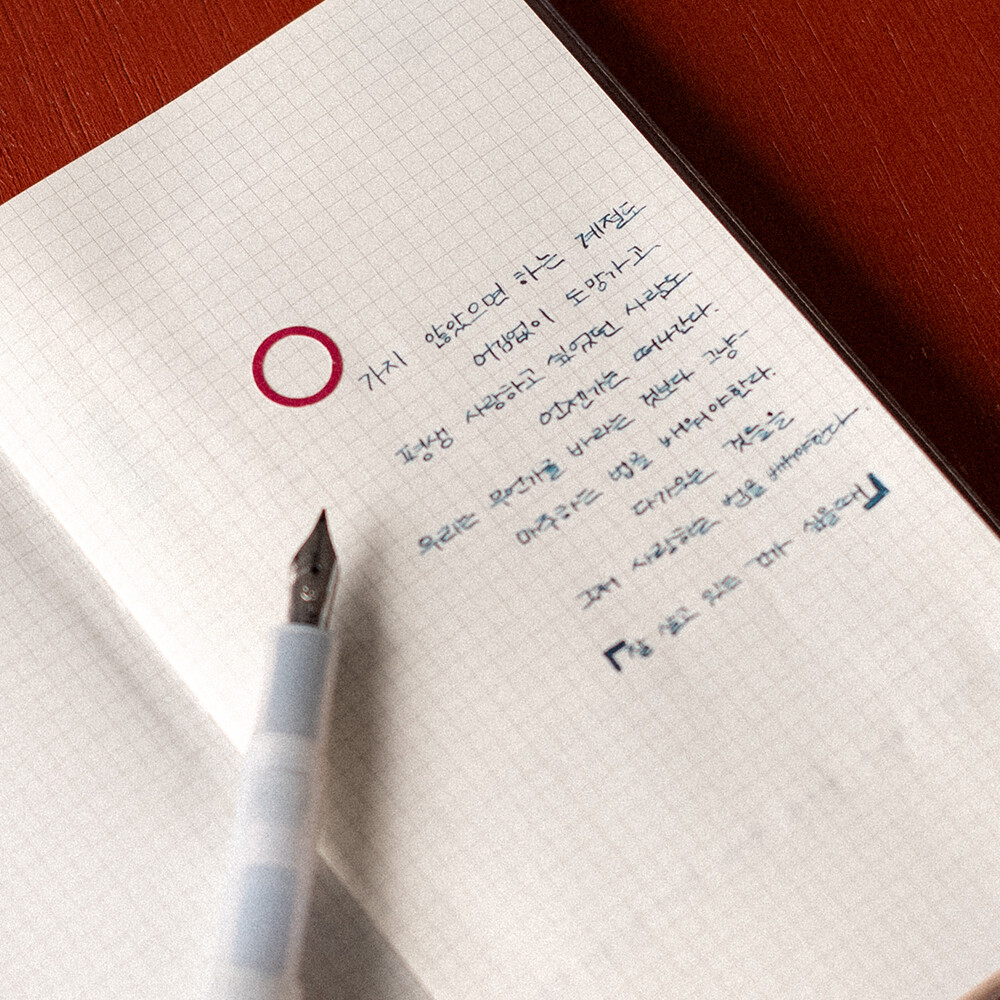 가지 않았으면 하는 계절도
어김없이 도망가고,
평생 사랑하고 싶었던 사람도
언젠가는 떠나간다.
우리는 무언가를 바라는 것보다 그냥
마주하는 법을 배워야한다.
다가오는 것들을
그저 사랑하는 법을 배워야한다.
『잘 살고 있고 싶을때』